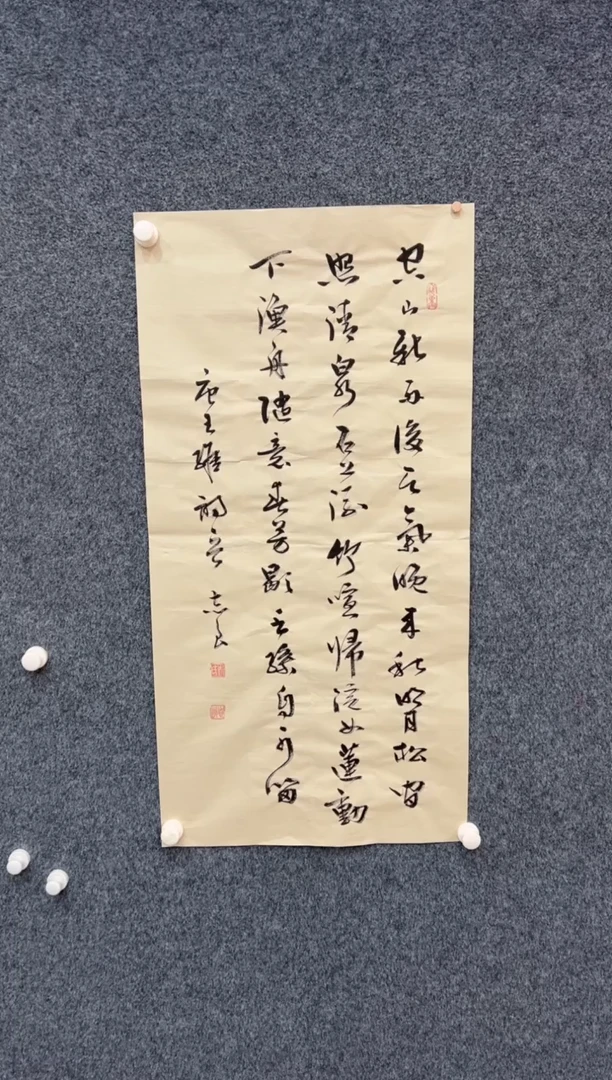 空山新雨後天氣晚來秋明月松間
照清泉石上流竹喧歸浣女蓮動
下漁舟隨意春芳歇王孫自可留
唐王維詩 志良